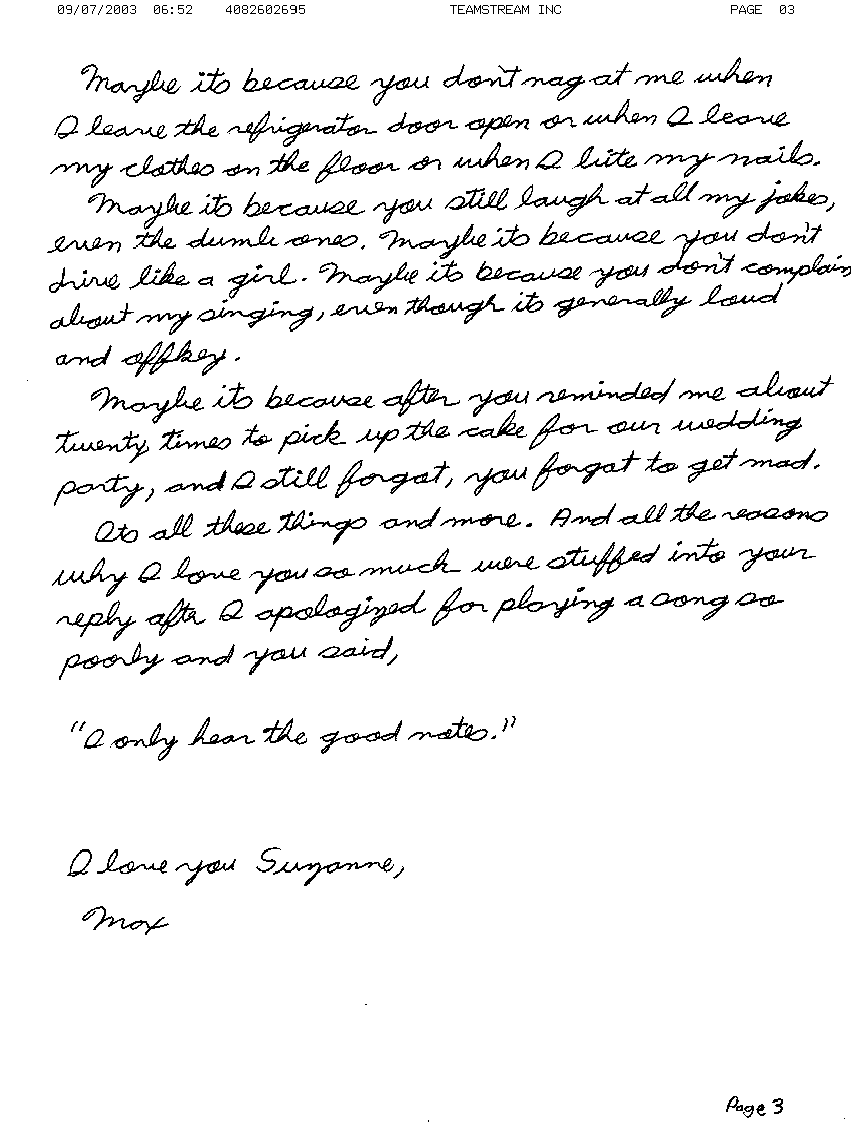 09/07/2003 06:52 4082602695 TEAMSTREAM INC PAGE 03
Maybe its because you don't nag at me when
I leave the refrigerator door open or when I leave
my clothes on the floor or when I bite my nails.
Maybe its because you still laugh at all my jokes,
even the dumb ones. Maybe its because you don't
drive like a girl. Maybe its because you don't complain
about my singing, even though its generally loud
and offkey.
Maybe its because after you reminded me about
twenty times to pick up the cake for our wedding
party, and I still forgot, you forgot to get mad.
Its all these things and more. And all the reasons
why I love you so much were stuffed into your
reply after I apologized for playing a song so
poorly and you said,
"I only hear the good notes."
I love you Suzanne,
Max
Page 3